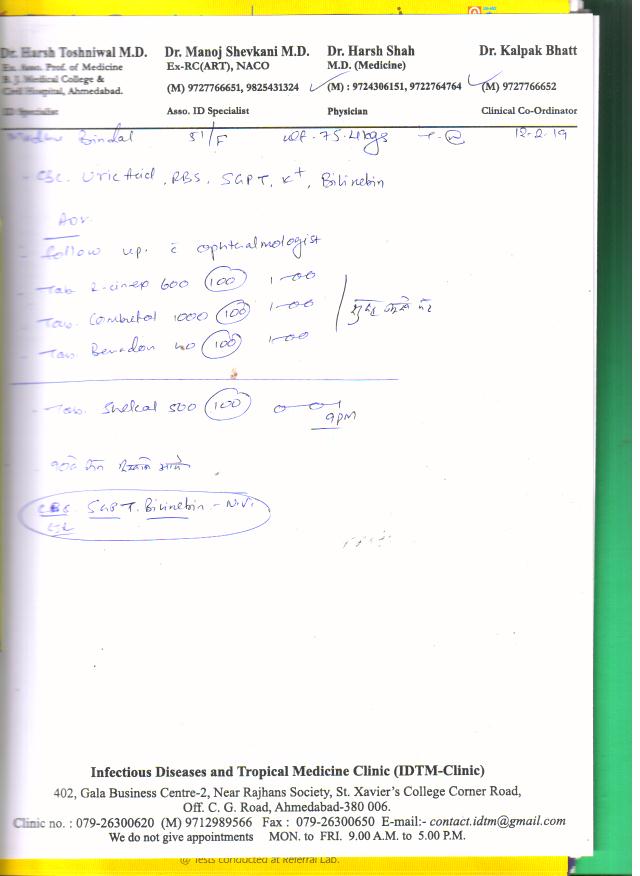 Dr. Harsh Toshniwal M.D.
Ex. Asso. Prof. of Medicine
B. J. Medical College &
Civil Hospital, Ahmedabad.
ID Specialist
Dr. Manoj Shevkani M.D.
Ex-RC(ART), NACO
(M) 9727766651, 9825431324
Asso. ID Specialist
Dr. Harsh Shah
M.D. (Medicine)
(M) : 9724306151, 9722764764
Physician
Dr. Kalpak Bhatt
(M) 9727766652
Clinical Co-Ordinator
Bindal 51/F wt. 75.4kgs 12-2-19
- CBC. Uric Acid, RBS, SGPT, K+, Bilirubin
Adv.
- follow up. c̄ ophthalmologist
- Tab R-cinep 600 (100) 1-00
- Tab. Combutol 1000 (100) 1-00
- Tab. Benadon 40 (100) 1-00
- Tab. Shelcal 500 (100) 0-01
9pm
CBC SGPT. Bilirubin
Infectious Diseases and Tropical Medicine Clinic (IDTM-Clinic)
402, Gala Business Centre-2, Near Rajhans Society, St. Xavier's College Corner Road,
Off. C. G. Road, Ahmedabad-380 006.
Clinic no. : 079-26300620 (M) 9712989566 Fax : 079-26300650 E-mail:- contact.idtm@gmail.com
We do not give appointments MON. to FRI. 9.00 A.M. to 5.00 P.M.
@ Tests conducted at Referral Lab.